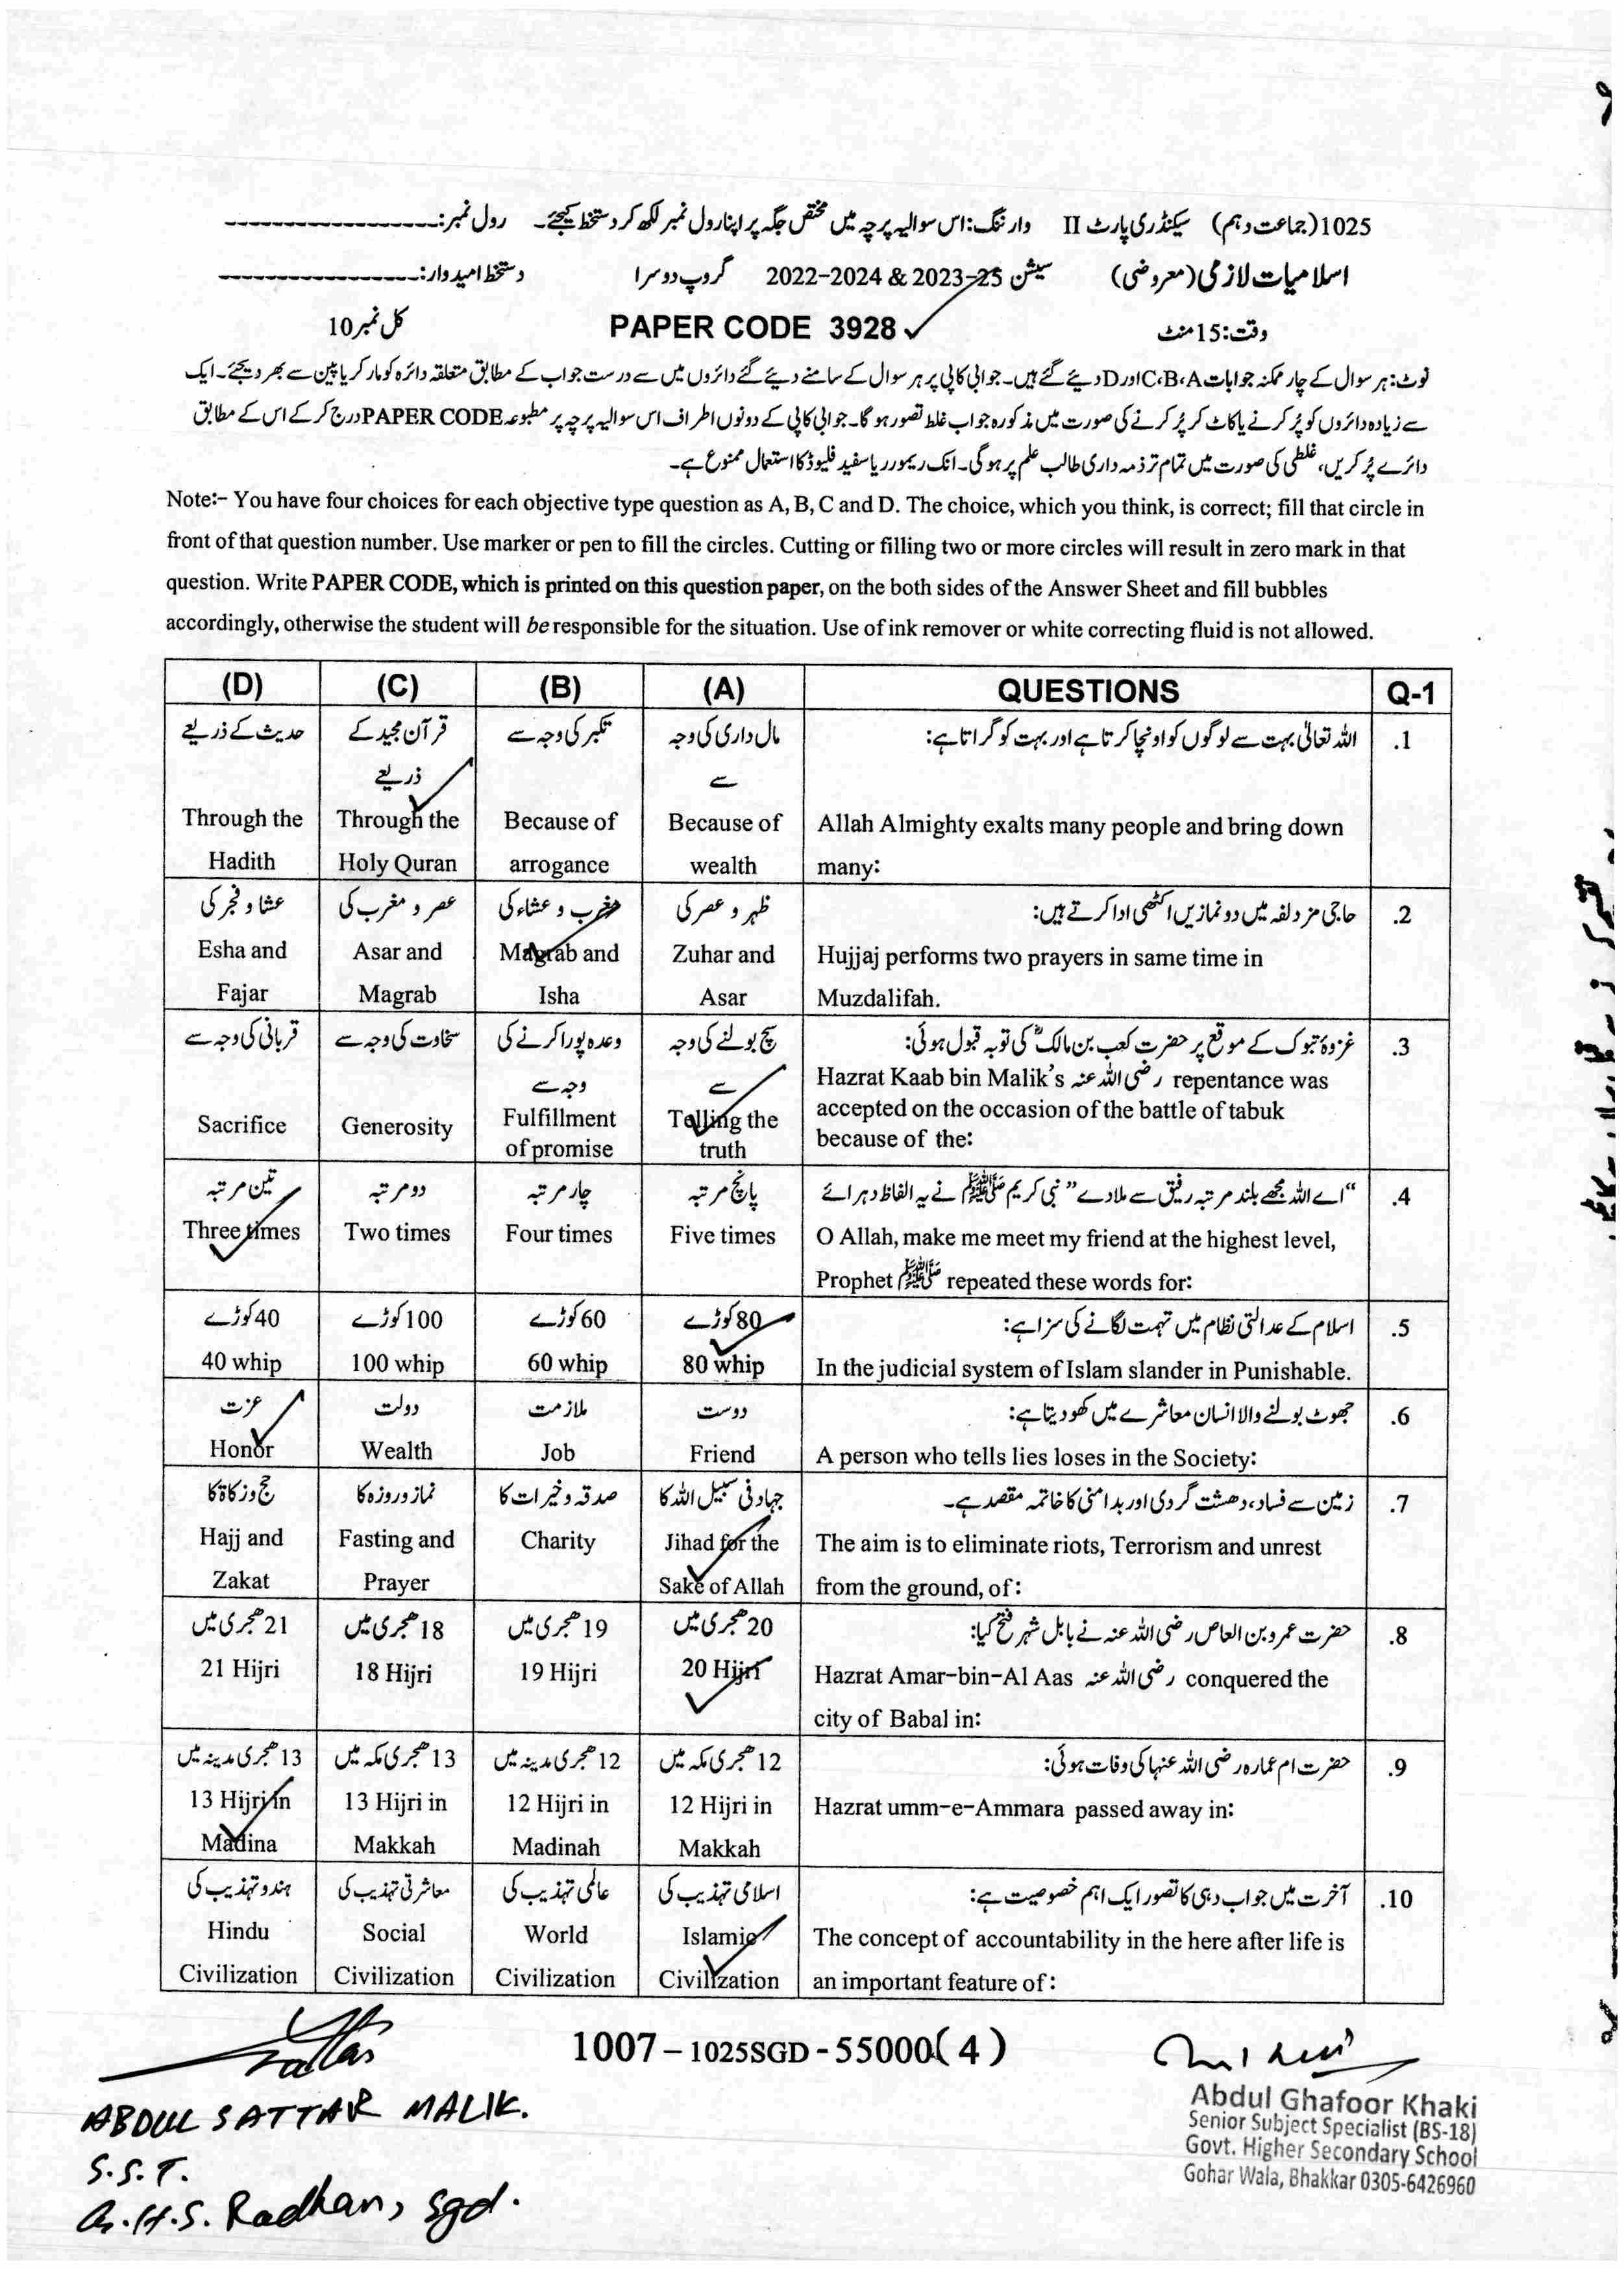 1025 (جماعت دہم) سیکنڈری پارٹ II وارننگ: اس سوالیہ پرچہ میں مختص جگہ پر اپنا رول نمبر لکھ کر دستخط کیجئے۔ رول نمبر: ------------------
اسلامیات لازمی (معروضی) سیشن 2022-2024 & 2023-25 گروپ دوسرا دستخط امیدوار: ------------------
وقت: 15 منٹ PAPER CODE 3928 کل نمبر 10
نوٹ: ہر سوال کے چار ممکنہ جوابات A،B،C اور D دیئے گئے ہیں۔ جوابی کاپی پر ہر سوال کے سامنے دیئے گئے دائروں میں سے درست جواب کے مطابق متعلقہ دائرہ کو مارکر یا پین سے بھر دیجئے۔ ایک
سے زیادہ دائروں کو پُر کرنے یا کاٹ کر پُر کرنے کی صورت میں مذکورہ جواب غلط تصور ہو گا۔ جوابی کاپی کے دونوں اطراف اس سوالیہ پرچہ پر مطبوعہ PAPER CODE درج کر کے اس کے مطابق
دائرے پُر کریں، غلطی کی صورت میں تمام تر ذمہ داری طالب علم پر ہو گی۔ انک ریمورر یا سفید فلیوڈ کا استعمال ممنوع ہے۔
Note:- You have four choices for each objective type question as A, B, C and D. The choice, which you think, is correct; fill that circle in
front of that question number. Use marker or pen to fill the circles. Cutting or filling two or more circles will result in zero mark in that
question. Write PAPER CODE, which is printed on this question paper, on the both sides of the Answer Sheet and fill bubbles
accordingly, otherwise the student will be responsible for the situation. Use of ink remover or white correcting fluid is not allowed.
(D) (C) (B) (A) QUESTIONS Q-1
.1 اللہ تعالیٰ بہت سے لوگوں کو اونچا کرتا ہے اور بہت کو گراتا ہے: مال داری کی وجہ تکبر کی وجہ سے قرآن مجید کے حدیث کے ذریعے
سے ذریعے
Through the Through the Because of Because of Allah Almighty exalts many people and bring down
Hadith Holy Quran arrogance wealth many:
.2 حاجی مزدلفہ میں دو نمازیں اکٹھی ادا کرتے ہیں: ظہر و عصر کی مغرب و عشاء کی عصر و مغرب کی عشا و فجر کی
Esha and Asar and Magrab and Zuhar and Hujjaj performs two prayers in same time in
Fajar Magrab Isha Asar Muzdalifah.
.3 غزوۂ تبوک کے موقع پر حضرت کعب بن مالکؓ کی توبہ قبول ہوئی: سچ بولنے کی وجہ وعدہ پورا کرنے کی سخاوت کی وجہ سے قربانی کی وجہ سے
سے وجہ سے
Hazrat Kaab bin Malik's رضی اللہ عنہ repentance was
Sacrifice Generosity Fulfillment Telling the accepted on the occasion of the battle of tabuk
of promise truth because of the:
.4 "اے اللہ مجھے بلند مرتبہ رفیق سے ملا دے" نبی کریم ﷺ نے یہ الفاظ دہرائے پانچ مرتبہ چار مرتبہ دو مرتبہ تین مرتبہ
Three times Two times Four times Five times O Allah, make me meet my friend at the highest level,
Prophet ﷺ repeated these words for:
.5 اسلام کے عدالتی نظام میں تہمت لگانے کی سزا ہے: 80 کوڑے 60 کوڑے 100 کوڑے 40 کوڑے
40 whip 100 whip 60 whip 80 whip In the judicial system of Islam slander in Punishable.
.6 جھوٹ بولنے والا انسان معاشرے میں کھو دیتا ہے: دوست ملازمت دولت عزت
Honor Wealth Job Friend A person who tells lies loses in the Society:
.7 زمین سے فساد، دہشت گردی اور بدامنی کا خاتمہ مقصد ہے۔ جہاد فی سبیل اللہ کا صدقہ و خیرات کا نماز و روزہ کا حج و زکاۃ کا
Hajj and Fasting and Charity Jihad for the The aim is to eliminate riots, Terrorism and unrest
Zakat Prayer Sake of Allah from the ground, of:
.8 حضرت عمرو بن العاص رضی اللہ عنہ نے بابل شہر فتح کیا: 20 ہجری میں 19 ہجری میں 18 ہجری میں 21 ہجری میں
21 Hijri 18 Hijri 19 Hijri 20 Hijri Hazrat Amar-bin-Al Aas رضی اللہ عنہ conquered the
city of Babal in:
.9 حضرت ام عمارہ رضی اللہ عنہا کی وفات ہوئی: 12 ہجری مکہ میں 12 ہجری مدینہ میں 13 ہجری مکہ میں 13 ہجری مدینہ میں
13 Hijri in 13 Hijri in 12 Hijri in 12 Hijri in Hazrat umm-e-Ammara passed away in:
Madina Makkah Madinah Makkah
.10 آخرت میں جواب دہی کا تصور ایک اہم خصوصیت ہے: اسلامی تہذیب کی عالمی تہذیب کی معاشرتی تہذیب کی ہندو تہذیب کی
Hindu Social World Islamic The concept of accountability in the here after life is
Civilization Civilization Civilization Civilization an important feature of:
1007 – 1025SGD - 55000( 4 )
ABDUL SATTAR MALIK.
S.S.T.
G.H.S. Radhan, Sgd.
Abdul Ghafoor Khaki
Senior Subject Specialist (BS-18)
Govt. Higher Secondary School
Gohar Wala, Bhakkar 0305-6426960